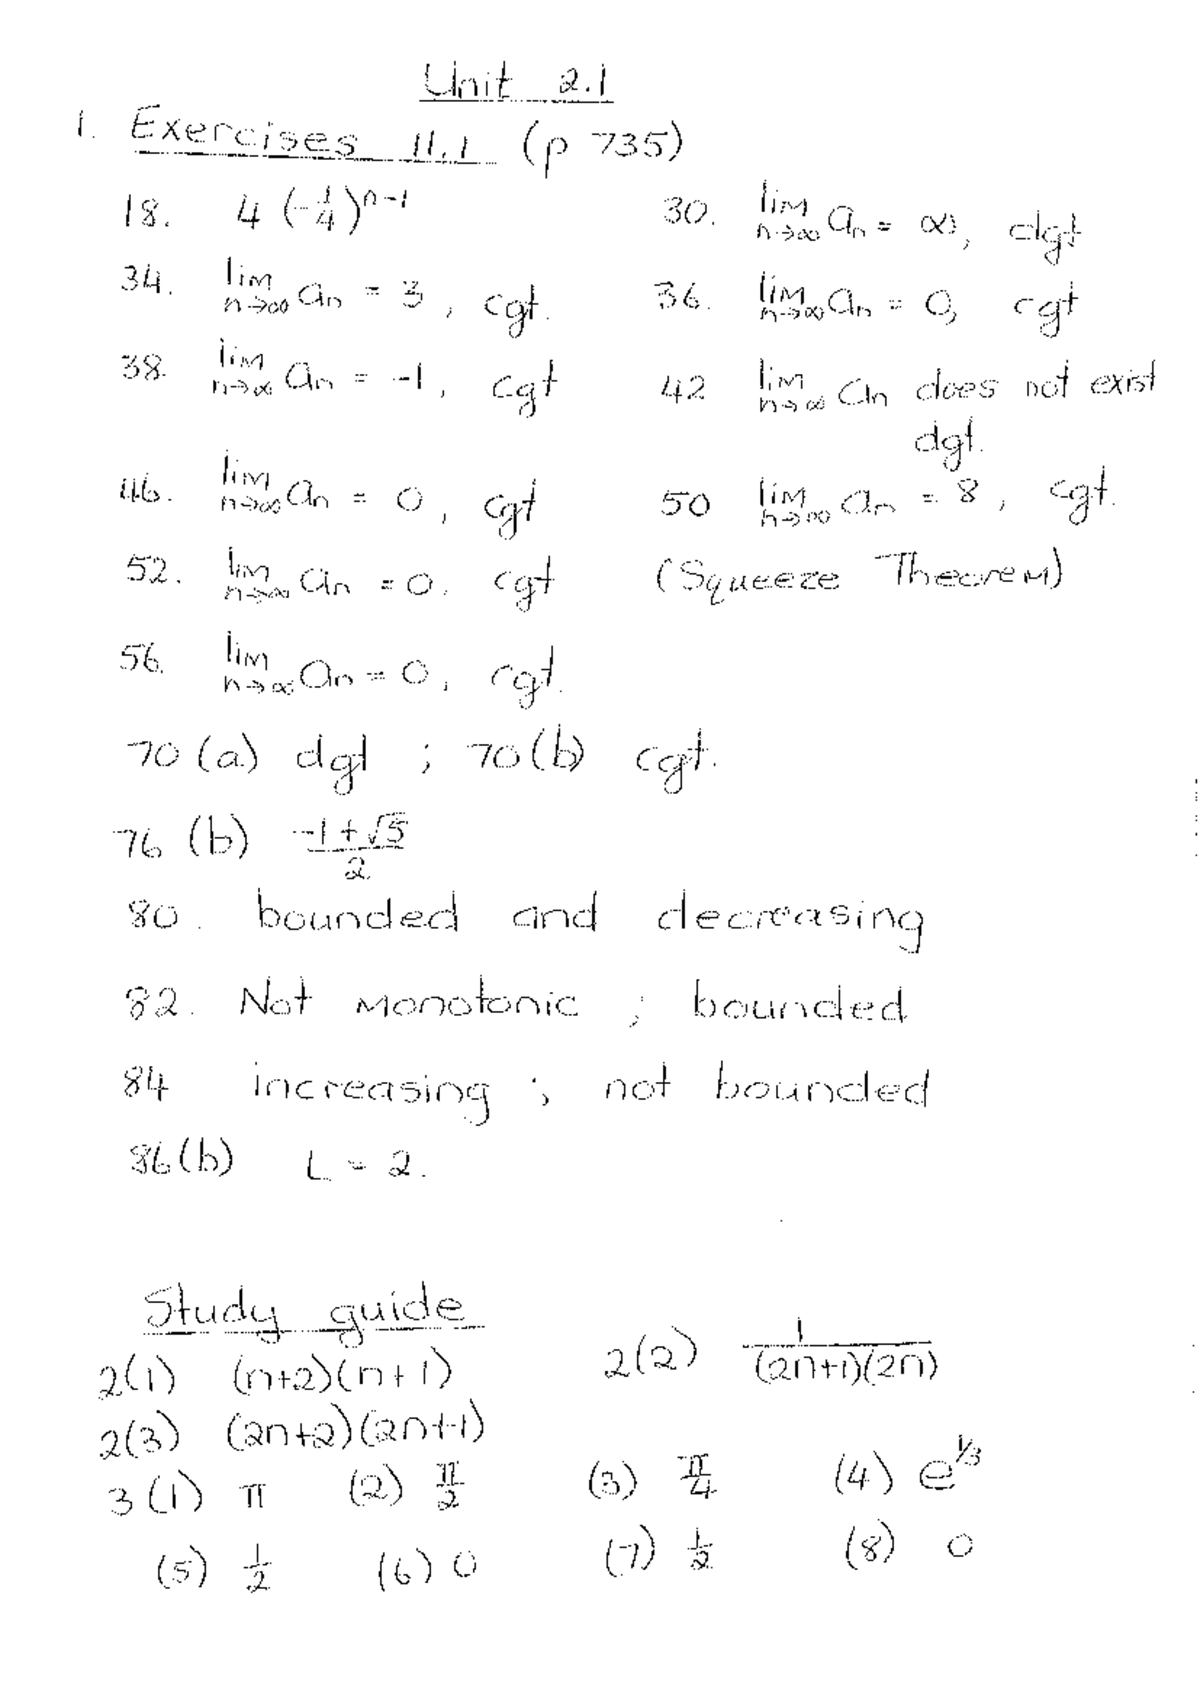 Unit 2.1
1. Exercises 11.1 (p 735)
18. 4(-1/4)^(n-1) 30. lim n→∞ an = ∞, dgt
34. lim n→∞ an = 3, cgt. 36. lim n→∞ an = 0, cgt
38. lim n→∞ an = -1, cgt 42 lim n→∞ an does not exist
dgt.
46. lim n→∞ an = 0, cgt 50 lim n→∞ an = 8, cgt.
52. lim n→∞ an = 0. cgt (Squeeze Theorem)
56. lim n→∞ an = 0, cgt.
70 (a) dgt ; 70 (b) cgt.
76 (b) (-1+√5)/2
80. bounded and decreasing
82. Not monotonic ; bounded
84 increasing ; not bounded
86(b) L = 2.
Study guide
2(1) (n+2)(n+1) 2(2) 1/((2n+1)(2n))
2(3) (2n+2)(2n+1)
3(1) π (2) π/2 (3) π/4 (4) e^(1/3)
(5) 1/2 (6) 0 (7) 1/2 (8) 0